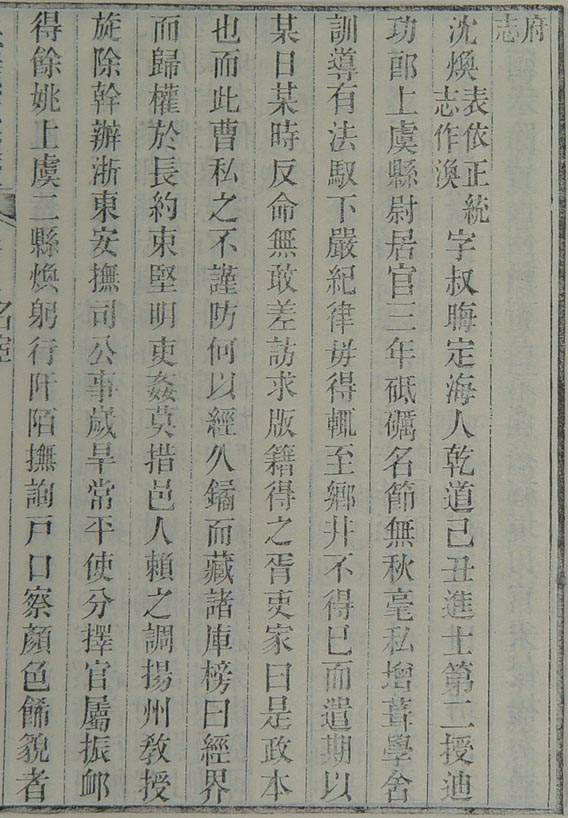 府志
沈煥表依正統志作渙字叔晦定海人乾道己丑進士第二授迪
功郎上虞縣尉居官三年砥礪名節無秋毫私增葺學舍
訓導有法馭下嚴紀律毋得輒至鄉井不得已而遣期以
某日某時反命無敢差訪求版籍得之胥吏家曰是政本
也而此曹私之不謹防何以經久鐍而藏諸庫榜曰經界
而歸權於長約束堅明吏姦莫措邑人賴之調揚州教授
旋除幹辦浙東安撫司公事歲旱常平使分擇官屬振卹
得餘姚上虞二縣煥躬行阡陌撫詢戶口察顏色飾貌者
名宦